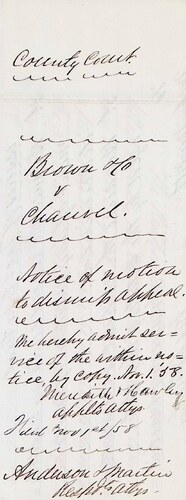 County Court.
Brown & Co
v
Chauvel.
Notice of motion
to dismiss appeal.
We hereby admit ser-
vice of the within no-
tice, by copy. Nov. 1. 58.
Meredith & Hawley
applts attys.
Filed Nov 1st/58
Anderson & Martin
Respts Attys.